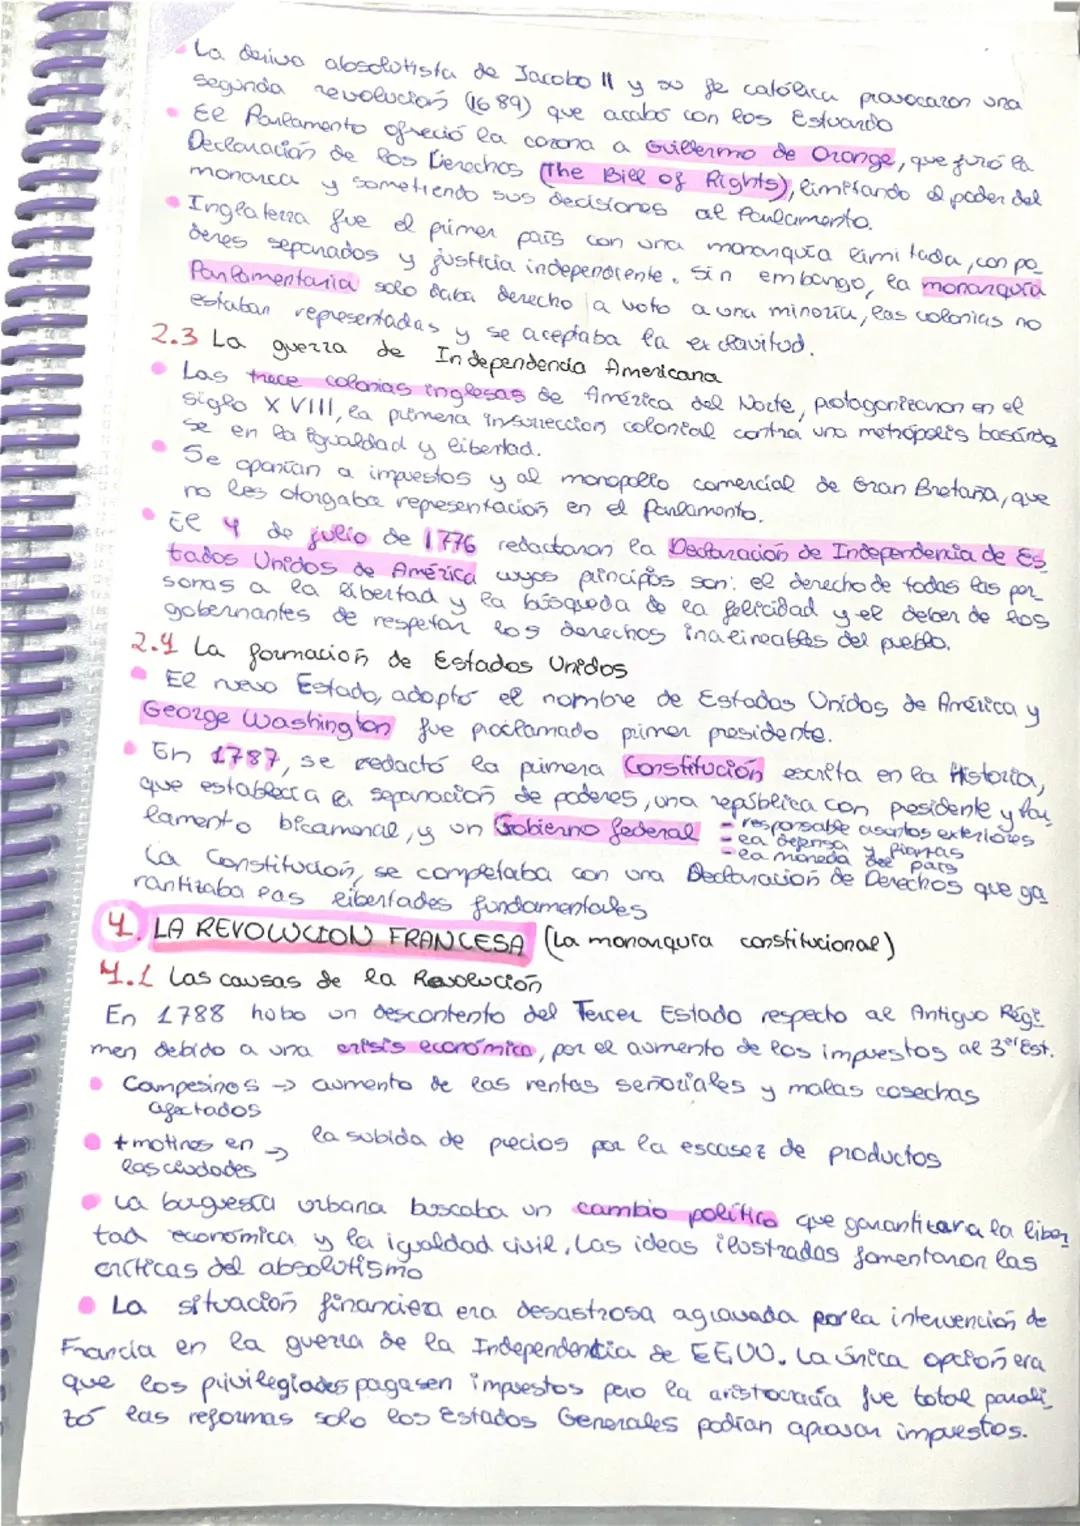 La deriva absolutista de Jacobo II y su fe católica provocaron una
segunda revolución (1689) que acabó con los Estuardo
El Parlamento ofreció la corona a Guillermo de Orange, que juró la
Declaración de los Derechos (The Bill of Rights), limitando el poder del
monarca y sometiendo sus decisiones al Parlamento.
Inglaterra fue el primer país con una monarquía limitada, con po
deres separados y justicia independiente. Sin embargo, la monarquía
Parlamentaria solo daba derecho a voto a una minoría, las colonias no
estaban representadas y se aceptaba la esclavitud.
2.3 La guerra de Independencia Americana
Las trece colonias inglesas de América del Norte, protagonizaron en el
siglo XVIII, la primera insurrección colonial contra una metrópolis basándo
se en la igualdad y libertad.
Se oponían a impuestos y al monopolio comercial de Gran Bretaña, que
no les otorgaba representación en el Parlamento.
El 4 de julio de 1776 redactaron la Declaración de Independencia de Es
tados Unidos de América cuyos principios son: el derecho de todas las per
sonas a la libertad y la búsqueda de la felicidad y el deber de los
gobernantes de respetar los derechos inalineables del pueblo.
2.4 La formación de Estados Unidos
El nuevo Estado, adoptó el nombre de Estados Unidos de América y
George Washington fue proclamado primer presidente.
En 1787, se redactó la primera Constitución escrita en la Historia,
que establecía la separación de poderes, una república con presidente y Par
lamento bicameral, y un Gobierno federal - responsable asuntos exteriores
- la defensa y fianzas
- la moneda del país
La Constitución, se completaba con una Declaración de Derechos que ga
rantizaba las libertades fundamentales
4. LA REVOLUCION FRANCESA (La monarquía constitucional)
4.1 Las causas de la Revolución
En 1788 hubo un descontento del Tercer Estado respecto al Antiguo Régi
men debido a una crisis económica, por el aumento de los impuestos al 3er Est.
Campesinos → aumento de las rentas señoriales y malas cosechas
afectados
+ motines en → la subida de precios por la escasez de productos
las ciudades
La burguesía urbana buscaba un cambio político que garantizara la liber
tad económica y la igualdad civil. Las ideas ilustradas fomentaron las
críticas del absolutismo
La situación financiera era desastrosa agravada por la intervención de
Francia en la guerra de la Independencia de EEUU. La única opción era
que los privilegiados pagasen impuestos pero la aristocracia fue total parali
zó las reformas solo los Estados Generales podían aprobar impuestos.